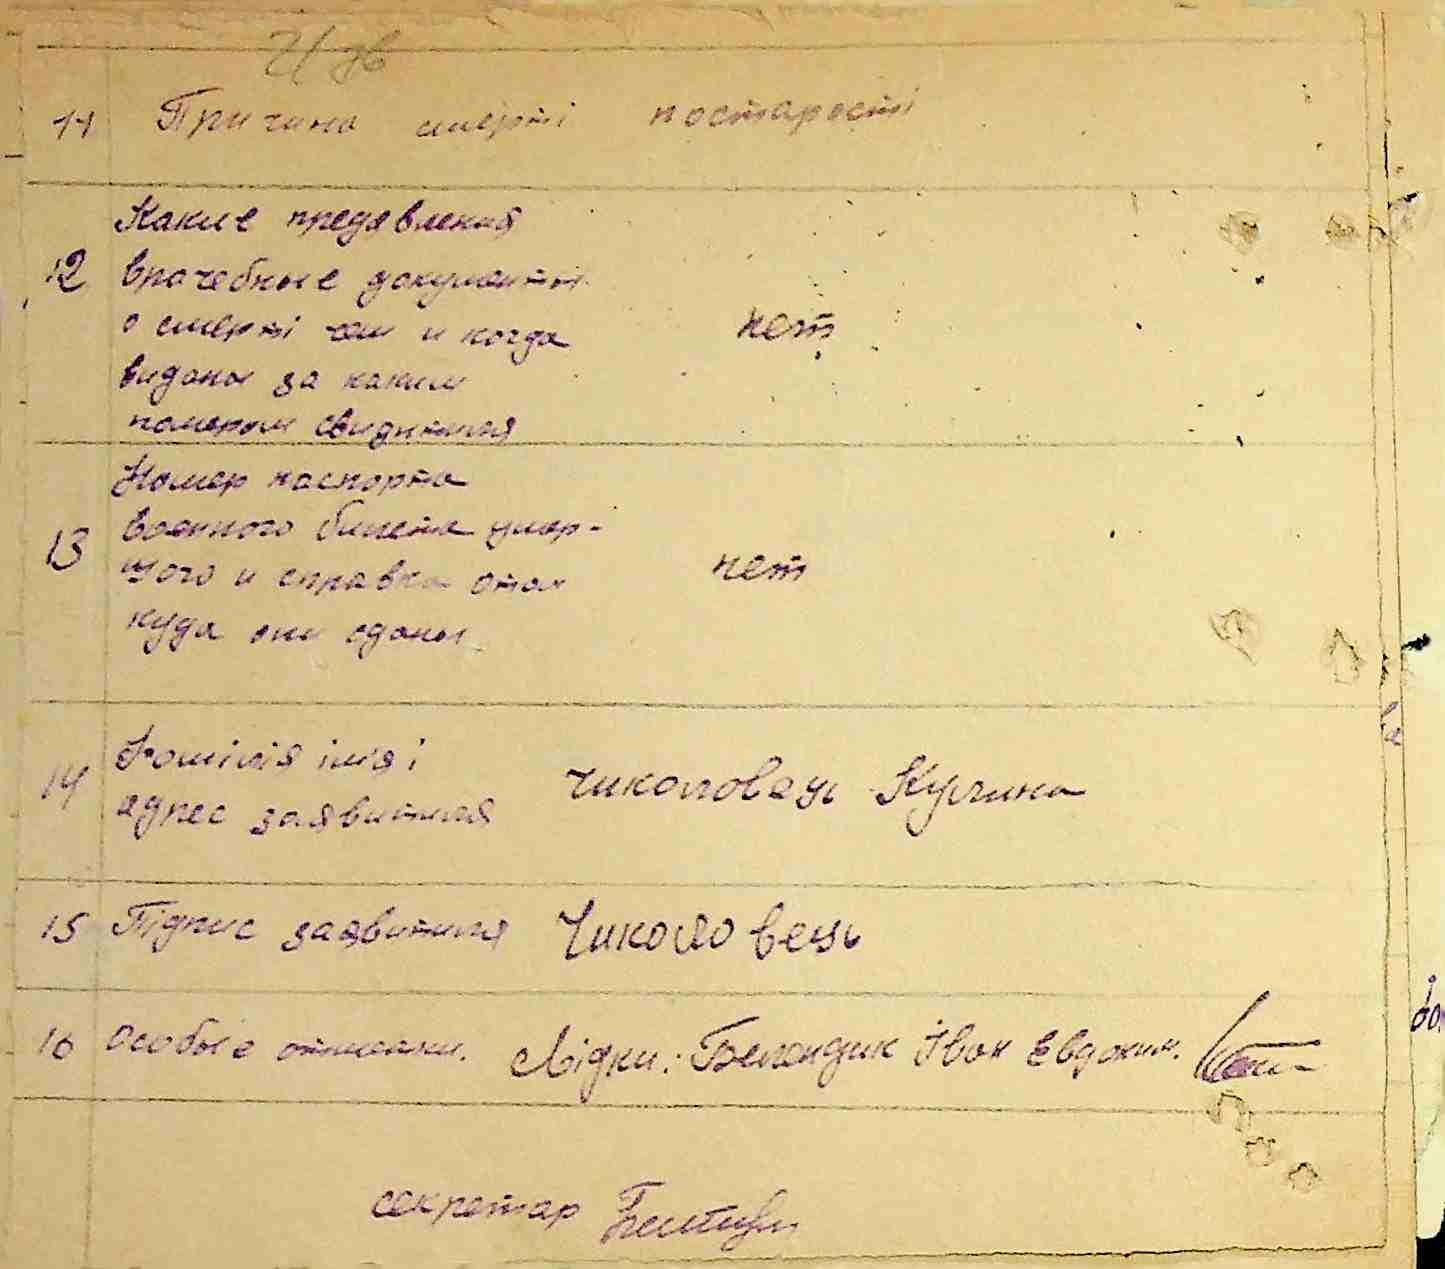 11 Причина смерті постарості
Какие предявления
12 врачебные документы
о смерті кем и когда нет
виданы за каким
номером свидителя
Номер паспорта
13 военного билета умер-
шого и справка нет
куда они сданы
14 Фамілія імя і
адрес заявителя Чиколовець Кулина
15 Підпис заявителя Чиколовець
16 Особые отметки. Свідки: Іван Евдоким.
секретар